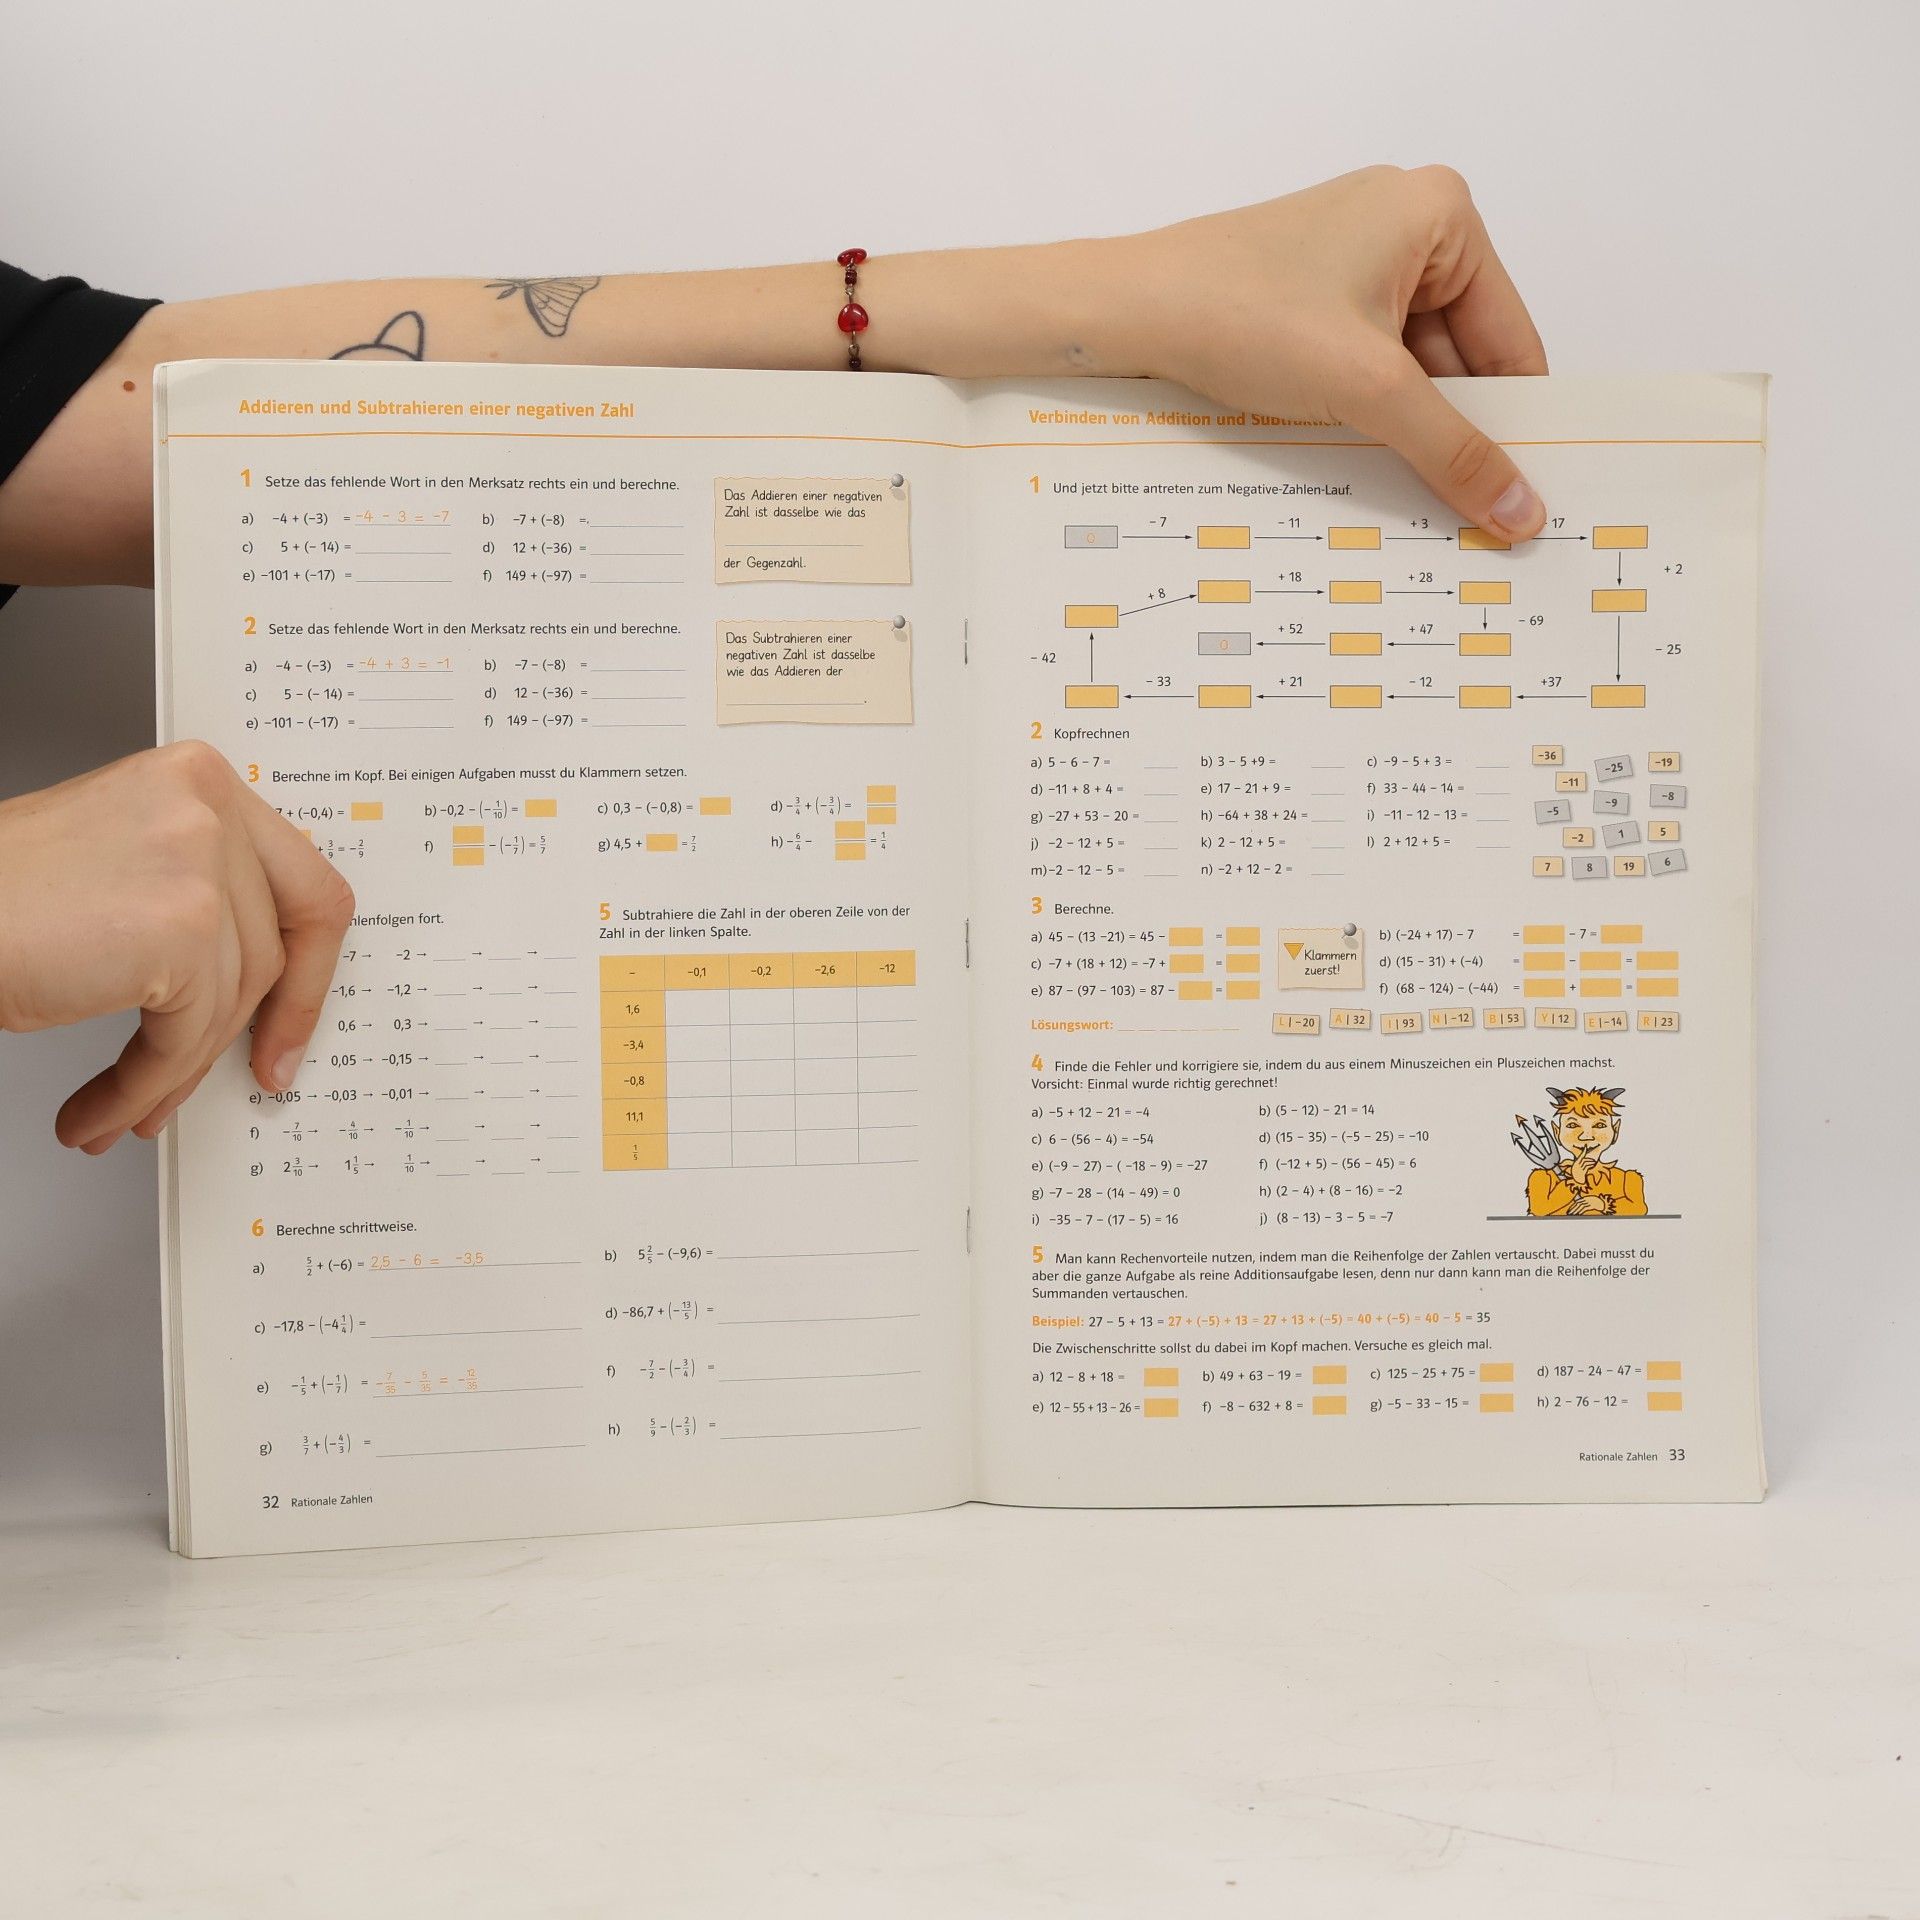 Addieren und Subtrahieren einer negativen Zahl
1 Setze das fehlende Wort in den Merksatz rechts ein und berechne.
a) −4 + (−3) = −4 − 3 = −7 b) −7 + (−8) =
c) 5 + (− 14) = d) 12 + (−36) =
e) −101 + (−17) = f) 149 + (−97) =
Das Addieren einer negativen
Zahl ist dasselbe wie das
der Gegenzahl.
2 Setze das fehlende Wort in den Merksatz rechts ein und berechne.
a) −4 − (−3) = −4 + 3 = −1 b) −7 − (−8) =
c) 5 − (− 14) = d) 12 − (−36) =
e) −101 − (−17) = f) 149 − (−97) =
Das Subtrahieren einer
negativen Zahl ist dasselbe
wie das Addieren der
.
3 Berechne im Kopf. Bei einigen Aufgaben musst du Klammern setzen.
+ (−0,4) = b) −0,2 − (−1/10) = c) 0,3 − (−0,8) = d) −3/4 + (−3/4) =
+ 3/9 = −2/9 f) − (−1/7) = 5/7 g) 4,5 + = 7/2 h) −6/4 − = 1/4
fort.
−7 → −2 → → →
−1,6 → −1,2 → → →
0,6 → 0,3 → → →
→ 0,05 → −0,15 → → →
e) −0,05 → −0,03 → −0,01 → → →
f) −7/10 → −4/10 → −1/10 → → →
g) 2 3/10 → 1 1/5 → 1/10 → → →
5 Subtrahiere die Zahl in der oberen Zeile von der
Zahl in der linken Spalte.
− −0,1 −0,2 −2,6 −12
1,6
−3,4
−0,8
11,1
1/5
6 Berechne schrittweise.
a) 5/2 + (−6) = 2,5 − 6 = −3,5 b) 5 2/5 − (−9,6) =
c) −17,8 − (−4 1/4) = d) −86,7 + (−13/5) =
e) −1/5 + (−1/7) = −7/35 − 5/35 = −12/35 f) −7/2 − (−3/4) =
g) 3/7 + (−4/3) = h) 5/9 − (−2/3) =
32 Rationale Zahlen
Verbinden von Addition und
1 Und jetzt bitte antreten zum Negative-Zahlen-Lauf.
0 − 7 − 11 + 3 17
+ 2
+ 8 + 18 + 28
− 69
0 + 52 + 47
− 42 − 25
− 33 + 21 − 12 +37
2 Kopfrechnen
a) 5 − 6 − 7 = b) 3 − 5 +9 = c) −9 − 5 + 3 =
d) −11 + 8 + 4 = e) 17 − 21 + 9 = f) 33 − 44 − 14 =
g) −27 + 53 − 20 = h) −64 + 38 + 24 = i) −11 − 12 − 13 =
j) −2 − 12 + 5 = k) 2 − 12 + 5 = l) 2 + 12 + 5 =
m) −2 − 12 − 5 = n) −2 + 12 − 2 =
−36 −25 −19
−11
−5 −9 −8
−2 1 5
7 8 19 6
3 Berechne.
a) 45 − (13 −21) = 45 − =
c) −7 + (18 + 12) = −7 + =
e) 87 − (97 − 103) = 87 − =
Klammern
zuerst!
b) (−24 + 17) − 7 = − 7 =
d) (15 − 31) + (−4) = − =
f) (68 − 124) − (−44) = + =
Lösungswort: L | −20 A | 32 I | 93 N | −12 B | 53 Y | 12 E | −14 R | 23
4 Finde die Fehler und korrigiere sie, indem du aus einem Minuszeichen ein Pluszeichen machst.
Vorsicht: Einmal wurde richtig gerechnet!
a) −5 + 12 − 21 = −4 b) (5 − 12) − 21 = 14
c) 6 − (56 − 4) = −54 d) (15 − 35) − (−5 − 25) = −10
e) (−9 − 27) − ( −18 − 9) = −27 f) (−12 + 5) − (56 − 45) = 6
g) −7 − 28 − (14 − 49) = 0 h) (2 − 4) + (8 − 16) = −2
i) −35 − 7 − (17 − 5) = 16 j) (8 − 13) − 3 − 5 = −7
5 Man kann Rechenvorteile nutzen, indem man die Reihenfolge der Zahlen vertauscht. Dabei musst du
aber die ganze Aufgabe als reine Additionsaufgabe lesen, denn nur dann kann man die Reihenfolge der
Summanden vertauschen.
Beispiel: 27 − 5 + 13 = 27 + (−5) + 13 = 27 + 13 + (−5) = 40 + (−5) = 40 − 5 = 35
Die Zwischenschritte sollst du dabei im Kopf machen. Versuche es gleich mal.
a) 12 − 8 + 18 = b) 49 + 63 − 19 = c) 125 − 25 + 75 = d) 187 − 24 − 47 =
e) 12 − 55 + 13 − 26 = f) −8 − 632 + 8 = g) −5 − 33 − 15 = h) 2 − 76 − 12 =
Rationale Zahlen 33